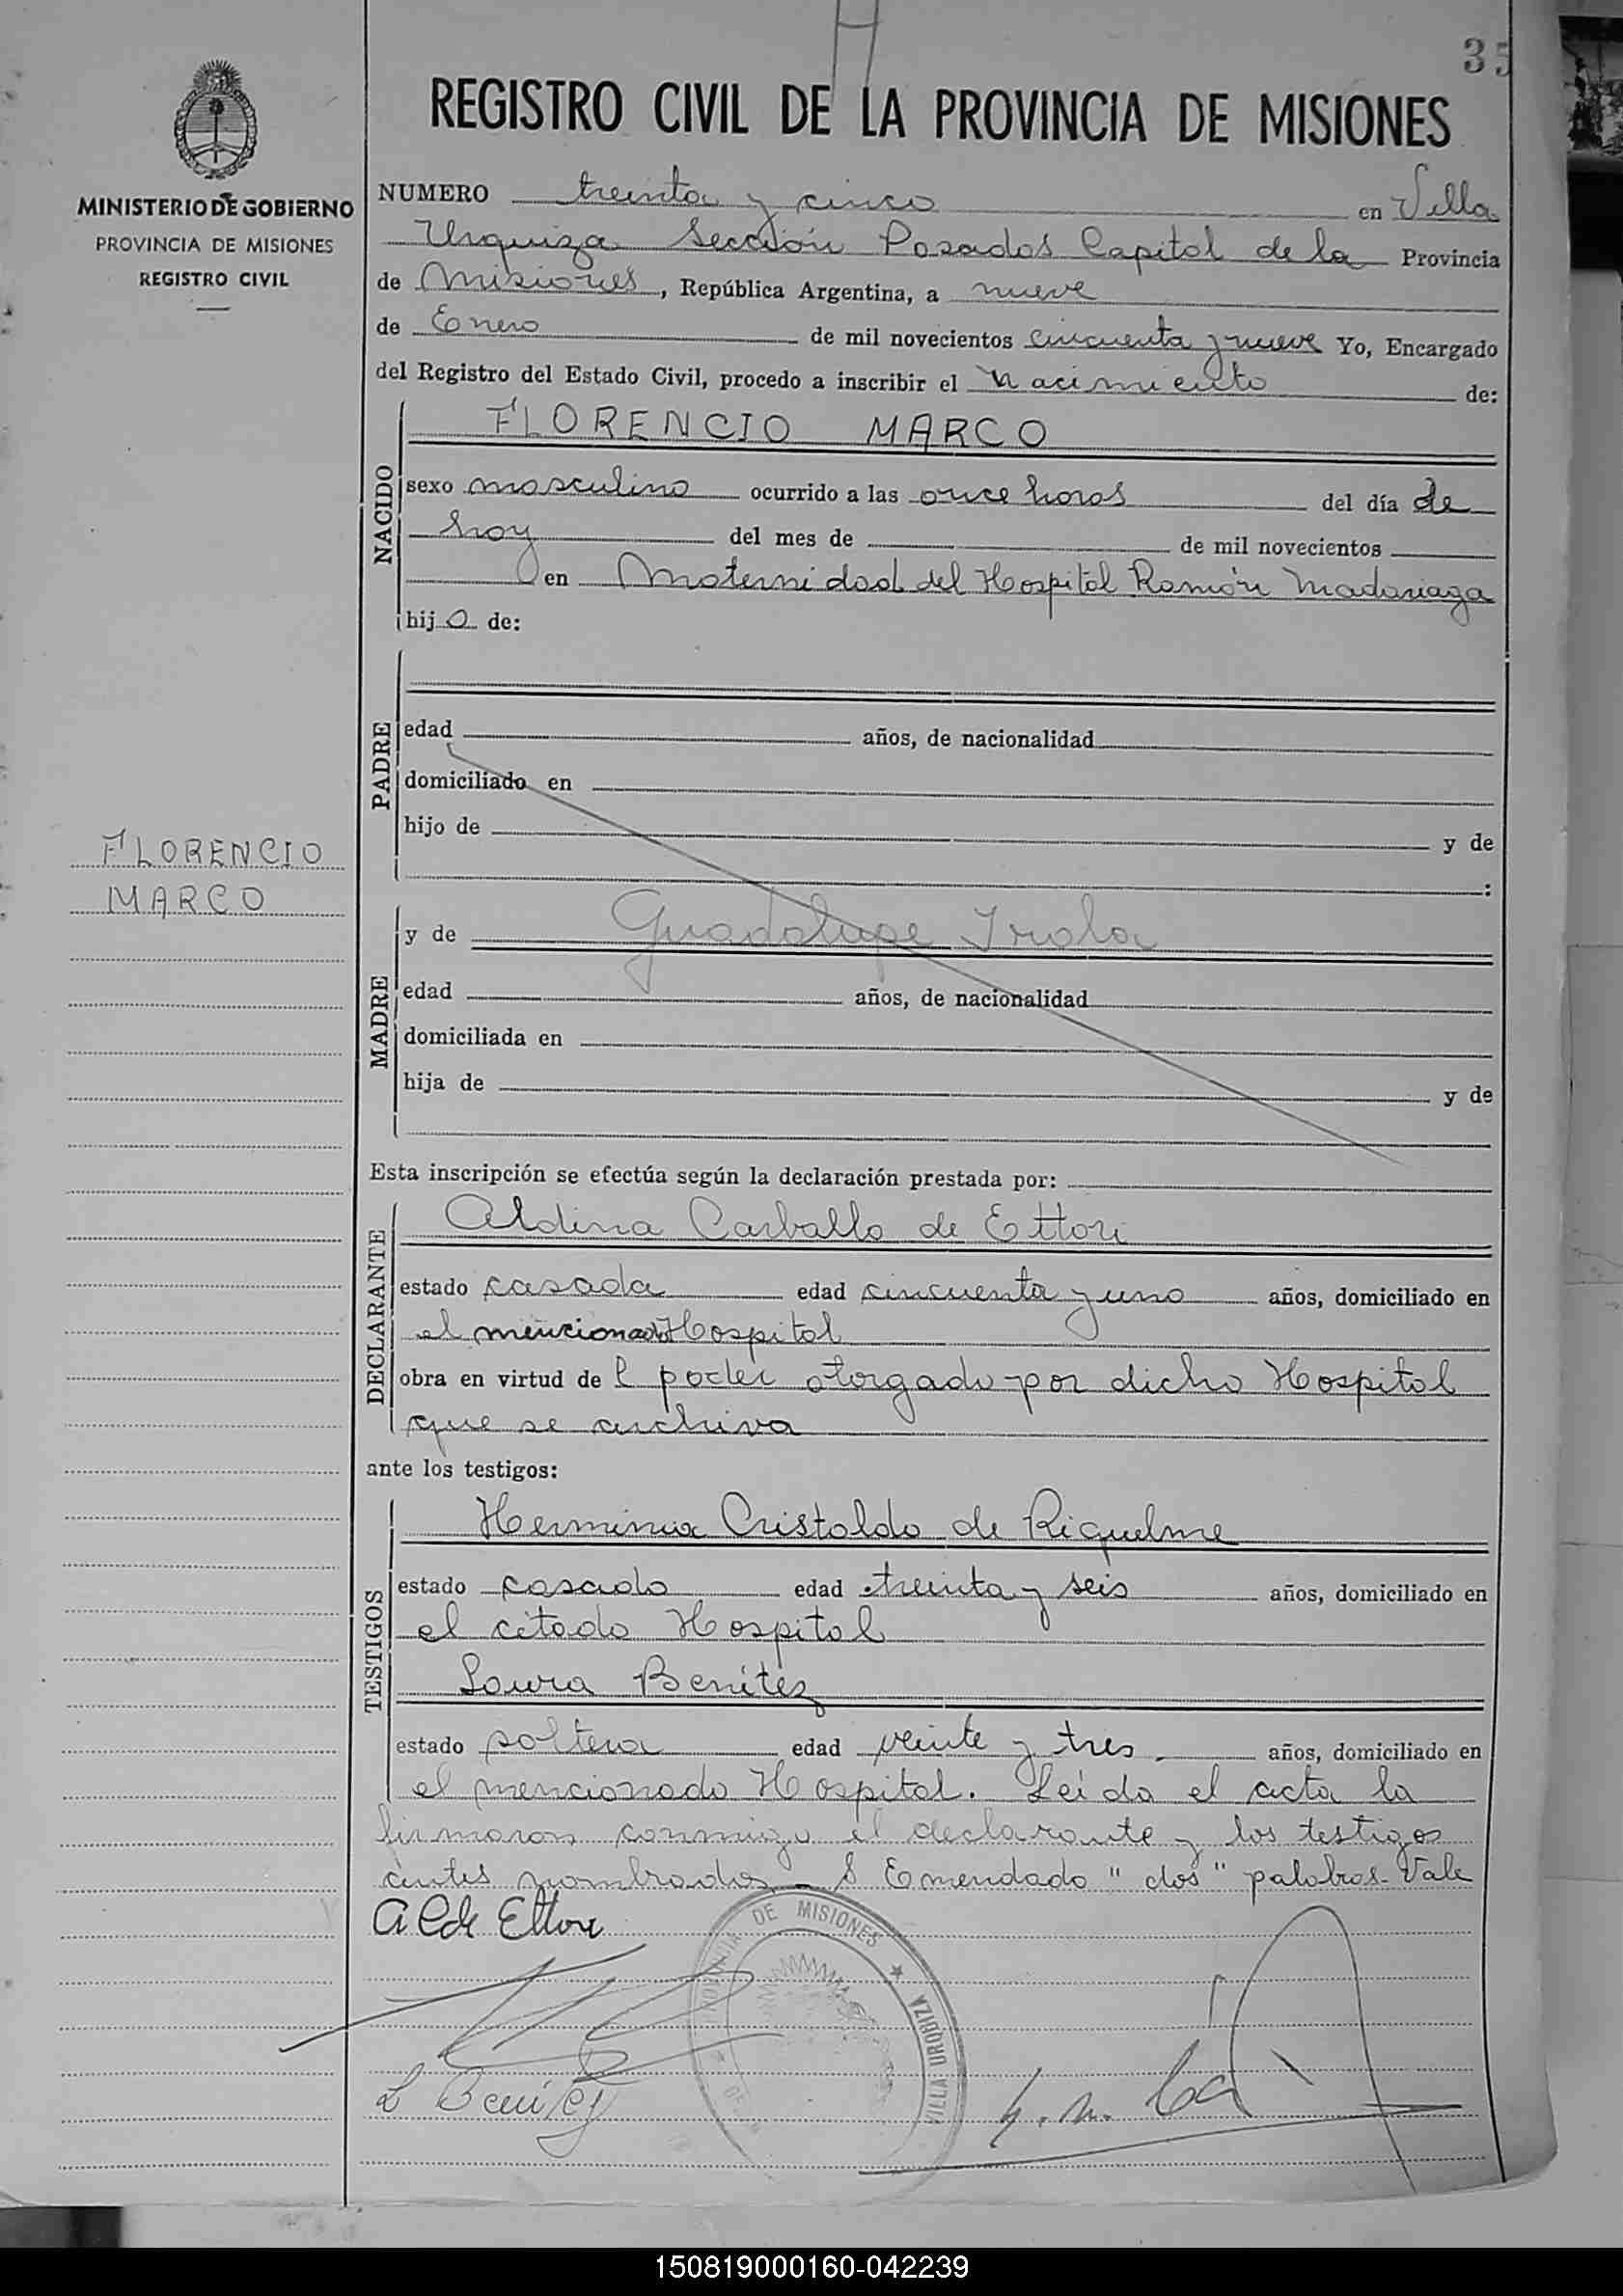 35
REGISTRO CIVIL DE LA PROVINCIA DE MISIONES
MINISTERIO DE GOBIERNO
PROVINCIA DE MISIONES
REGISTRO CIVIL
NUMERO treinta y cinco en Villa
Urquiza Sección Posadas Capital de la Provincia
de Misiones, República Argentina, a nueve
de Enero de mil novecientos cincuenta y nueve Yo, Encargado
del Registro del Estado Civil, procedo a inscribir el nacimiento de:
NACIDO
FLORENCIO MARCO
sexo masculino ocurrido a las once horas del día de
hoy del mes de de mil novecientos
en Maternidad del Hospital Ramón Madariaga
hijo de:
PADRE
edad años, de nacionalidad
domiciliado en
hijo de y de
:
FLORENCIO
MARCO
MADRE
y de Guadalupe Irala
edad años, de nacionalidad
domiciliada en
hija de y de
Esta inscripción se efectúa según la declaración prestada por:
DECLARANTE
Aldina Carballo de Ettori
estado casada edad cincuenta y uno años, domiciliado en
el mencionado Hospital
obra en virtud de l poder otorgado por dicho Hospital
que se archiva
ante los testigos:
TESTIGOS
Herminia Cristaldo de Riquelme
estado casada edad treinta y seis años, domiciliado en
el citado Hospital
Laura Benítez
estado soltera edad veinte y tres años, domiciliado en
el mencionado Hospital. Leída el acta la
firmaron conmigo el declarante y los testigos
antes nombrados - Emendado "dos" palabras. Vale
A C de Ettori
PROVINCIA DE MISIONES ★ VILLA URQUIZA
L Benítez
150819000160-042239